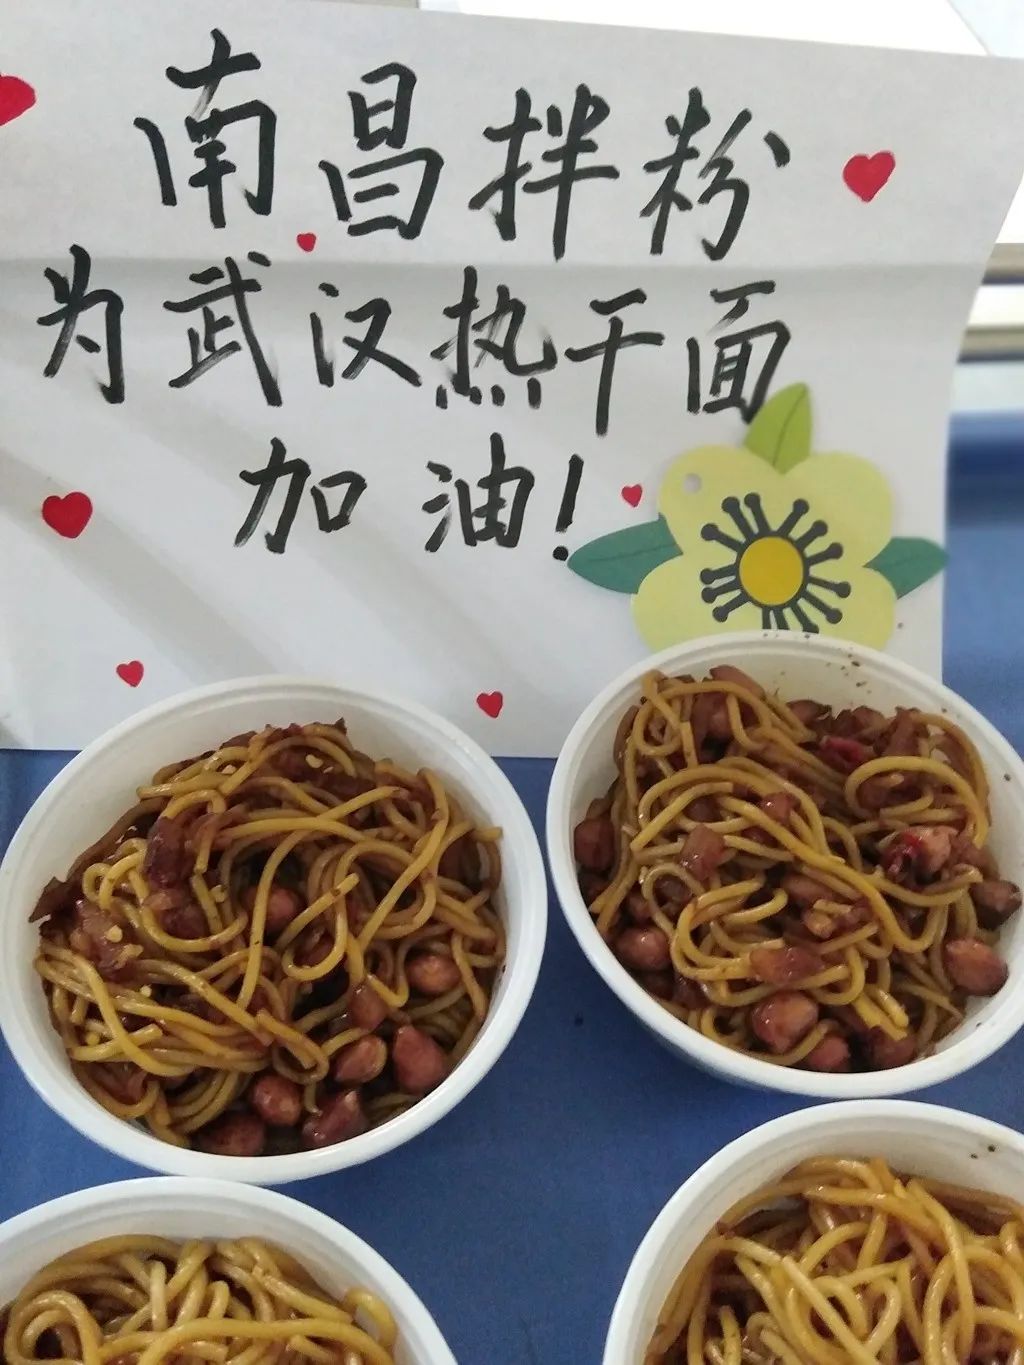 南昌拌粉
为武汉热干面
加油!